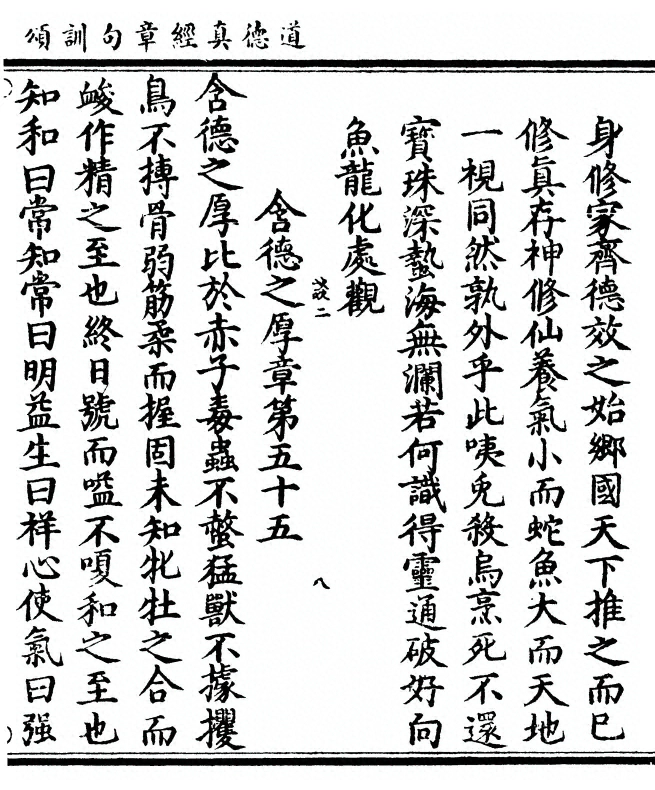 道德真經章句訓頌
身修家齊德效之始鄉國天下推之而已
修真存神修仙養氣小而蛇魚大而天地
一視同然孰外乎此咦兔殺烏烹死不還
寶珠深蟄海無瀾若何識得靈通破好向
魚龍化處觀
含德之厚章第五十五
含德之厚比於赤子毒蟲不螫猛獸不據攫
鳥不搏骨弱筋柔而握固未知牝牡之合而
峻作精之至也終日號而嗌不嗄和之至也
知和曰常知常曰明益生曰祥心使氣曰强